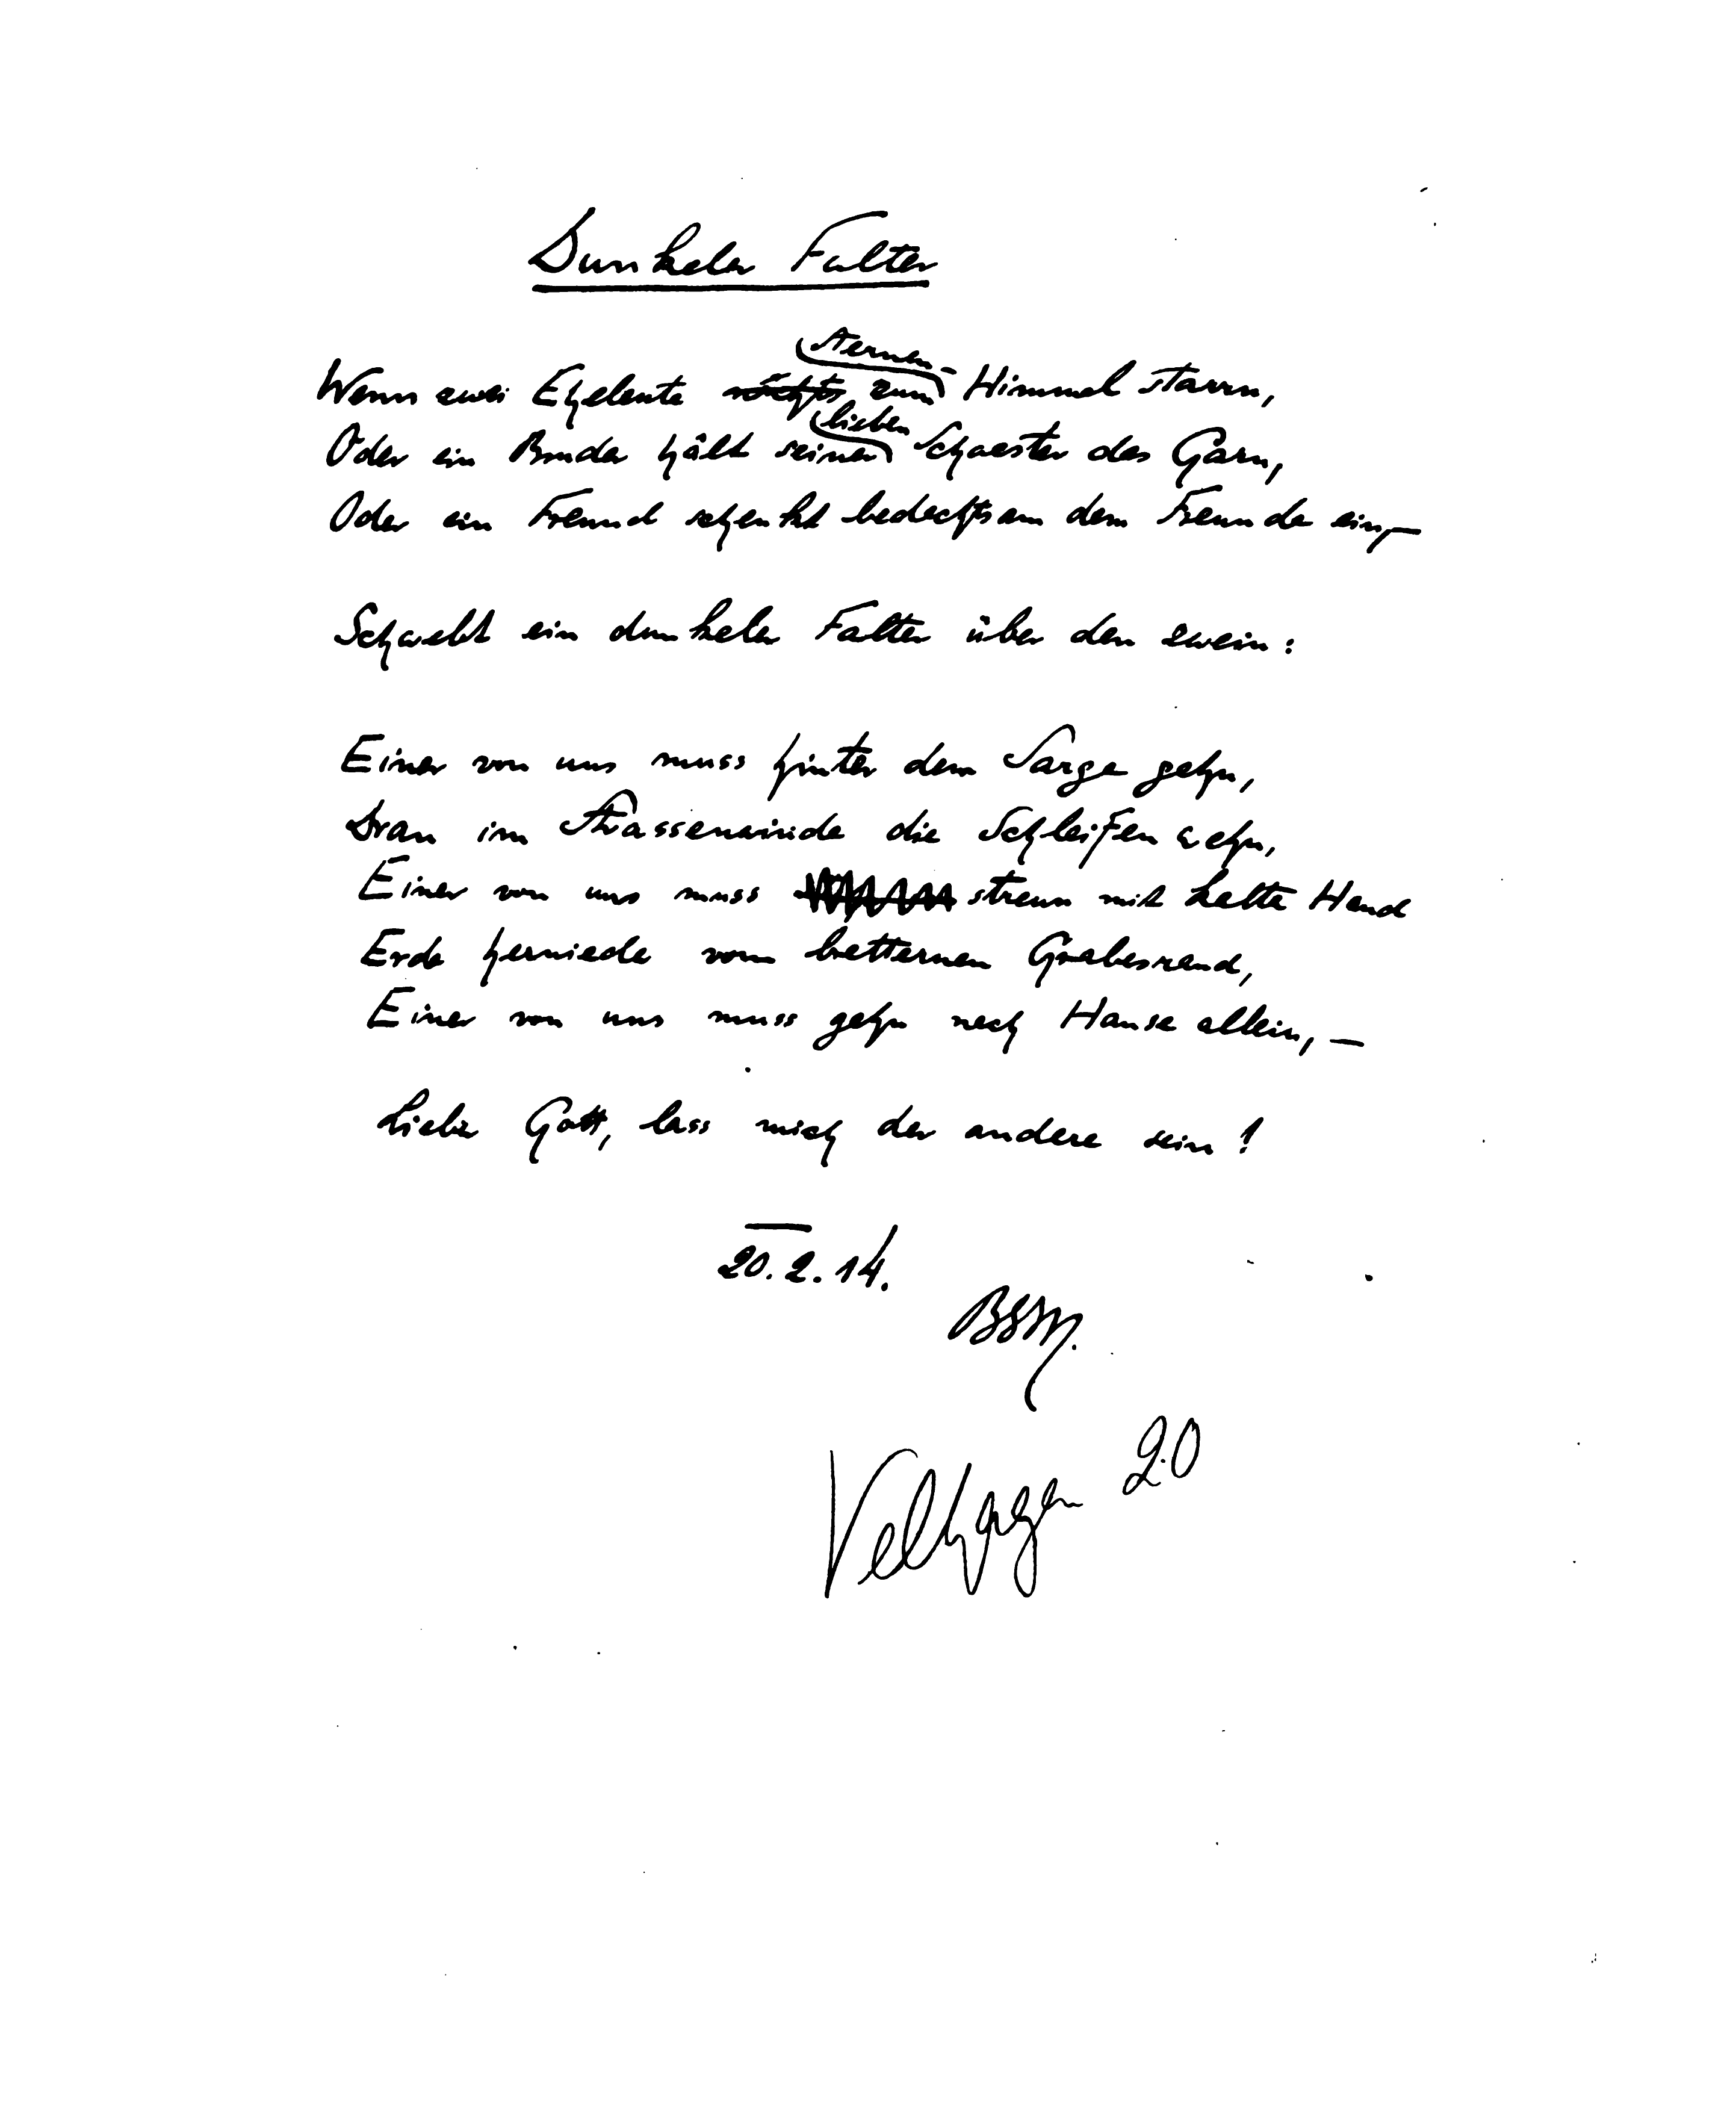 Dunkeler Falter
Wenn zwei Eheleute nachts zum Sternen- Himmel starrn,
Oder ein Bruder hält seiner lieben Schwester das Garn,
Oder ein Freund schenkt bedachtsam dem Freunde ein, —
Schwebt ein dunkeler Falter über den zwein:
Einer von uns muss hinter dem Sarge gehn,
Dran im Strassenwinde die Schleifen wehn,
Einer von uns muss streun mit kalter Hand
Erde hernieder vom bretternen Grabesrand,
Einer von uns muss gehn nach Hause allein, —
Lieber Gott, lass mich der andere sein!
20.2.14.
BSM.
Velhagen 20